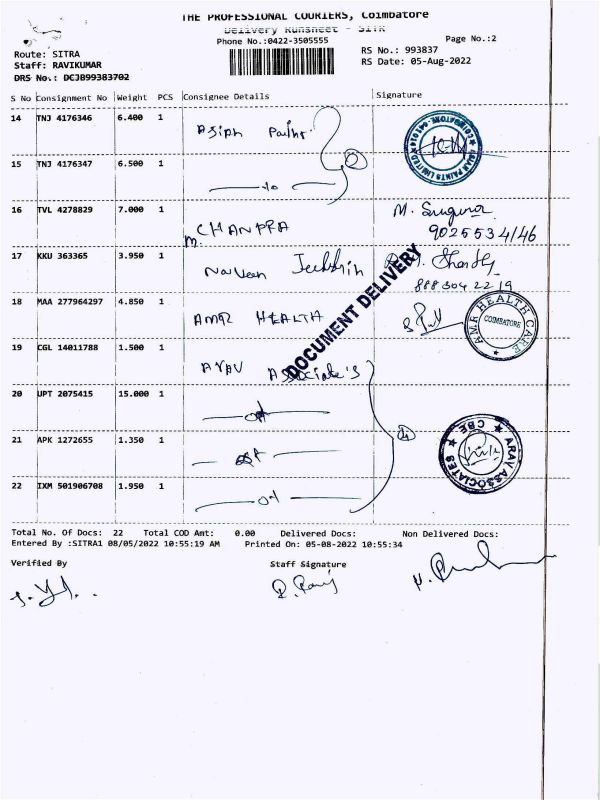 THE PROFESSIONAL COURIERS, Coimbatore
Delivery Runsheet - SITR
Phone No.:0422-3505555
Page No.:2
Route: SITRA
RS No.: 993837
Staff: RAVIKUMAR
RS Date: 05-Aug-2022
DRS No.: DCJB99383702
S No Consignment No Weight PCS Consignee Details Signature
14 TNJ 4176346 6.400 1
ASIAN PAINTS LIMITED COIMBATORE
15 TNJ 4176347 6.500 1
16 TVL 4278829 7.000 1 M. Suguna
CHANDRA 9025534146
17 KKU 363365 3.950 1
Naveen
DOCUMENT DELIVERY
18 MAA 277964297 4.850 1
AMR HEALTH
AMR HEALTH CARE COIMBATORE
19 CGL 14011788 1.500 1
ARAV Associate's
20 UPT 2075415 15.000 1
21 APK 1272655 1.350 1
ARAV ASSOCIATES CBE
22 IXM 501906708 1.950 1
Total No. Of Docs: 22 Total COD Amt: 0.00 Delivered Docs: Non Delivered Docs:
Entered By :SITRA1 08/05/2022 10:55:19 AM Printed On: 05-08-2022 10:55:34
Verified By Staff Signature